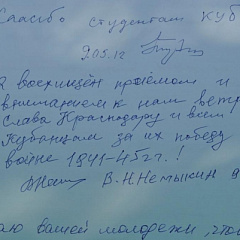 Спасибо студентам КУБ
9.05.12
Я восхищён приёмом и
вниманием к нам ветр
Слава Краснодару и всем
Кубанцам за их победу
войне 1941-45гг.!
В.Н.Немыкин 9
аю вашей молодежи, что